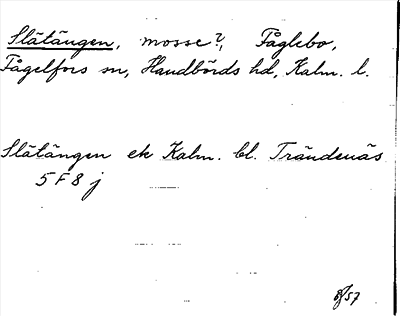 Slätängen, mosse?, Fåglebo,
Fågelfors sn, Handbörds hd, Kalm. l.
Slätängen ek Kalm. bl. Trändenäs
5 F 8 j
8/57